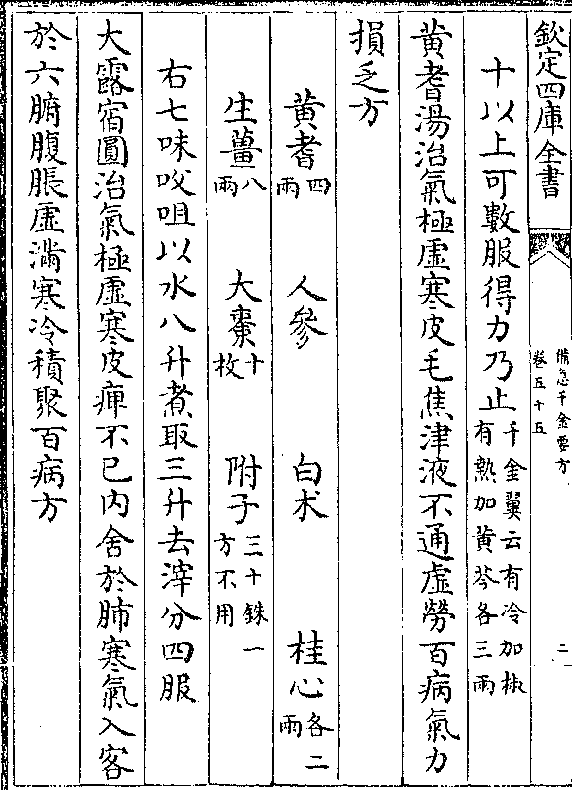 欽定四庫全書
備急千金要方
卷五十五
二
十以上可數服得力乃止千金翼云有冷加椒有熱加黃芩各三兩
黃耆湯治氣極虛寒皮毛焦津液不通虛勞百病氣力
損乏方
黃耆四兩 人參 白朮 桂心各二兩
生薑八兩 大棗十枚 附子三十銖一方不用
右七味㕮咀以水八升煮取三升去滓分四服
大露宿圓治氣極虛寒皮痹不已內舍於肺寒氣入客
於六腑腹脹虛滿寒冷積聚百病方